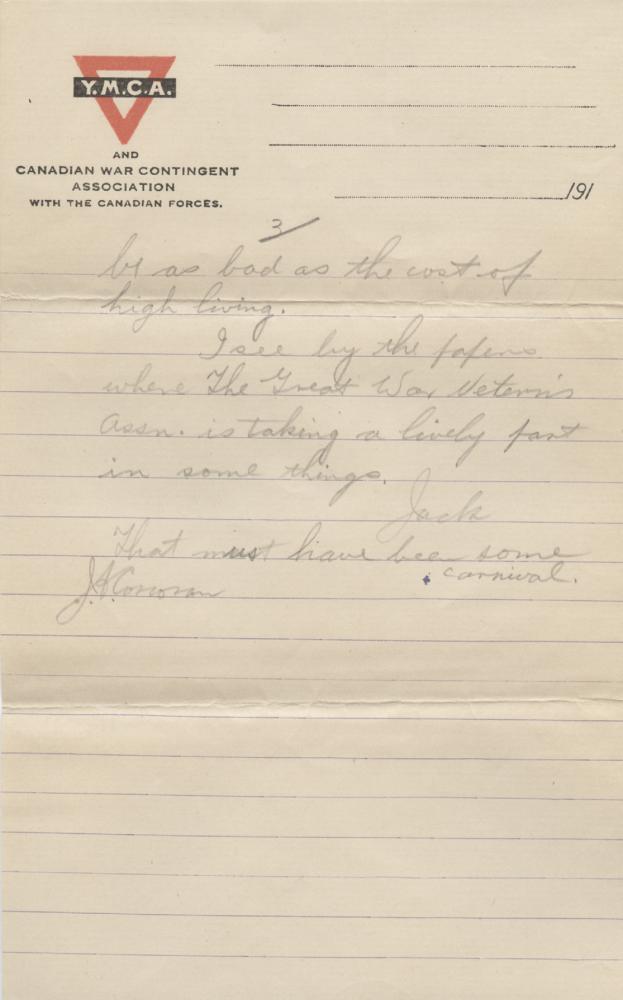 Y.M.C.A.
AND
CANADIAN WAR CONTINGENT
ASSOCIATION
WITH THE CANADIAN FORCES.
191
3
be as bad as the cost of
high living.
I see by the papers
where The Great War Vetern's
Assn. is taking a lively part
in some things.
Jack
That must have been some
carnival.
J.